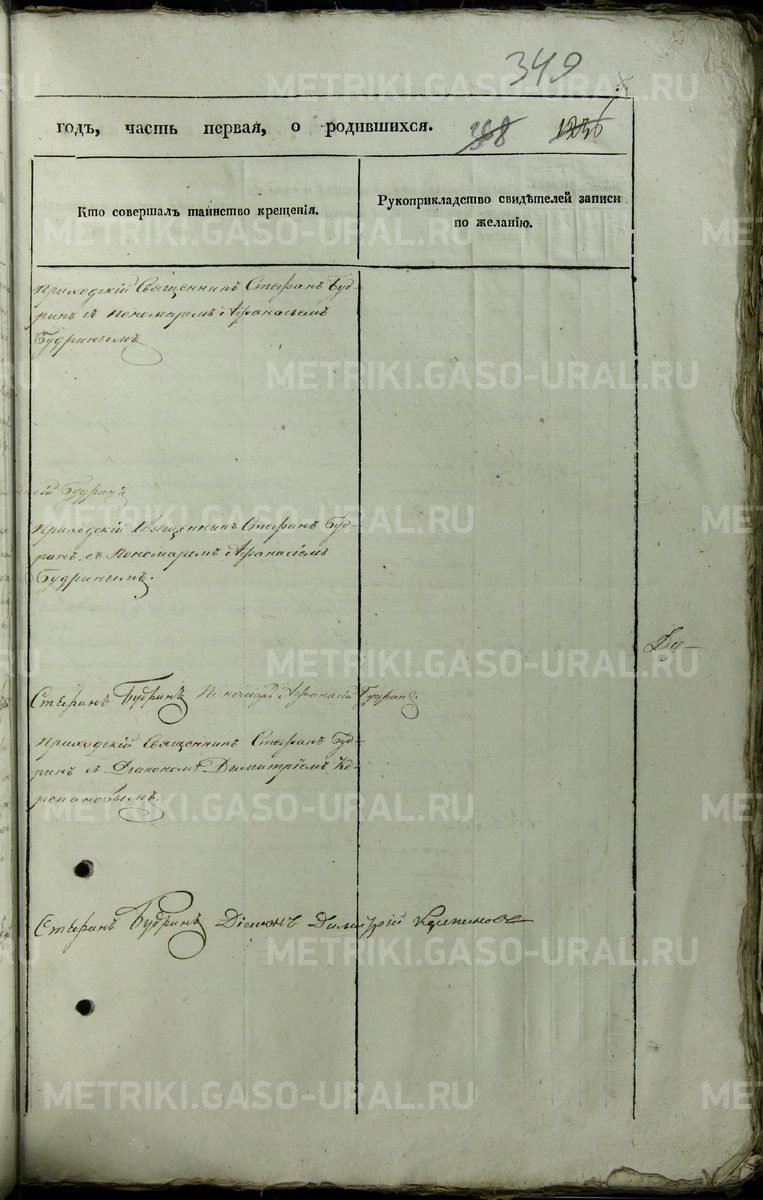 349
годъ, часть первая, о родившихся. 388 1236
Кто совершалъ таинство крещенія.
Рукоприкладство свидѣтелей записи
по желанію.
Приходскій Священникъ Стефанъ Буд-
ринъ съ Пономаремъ Афанасьемъ
Будринымъ
Будринъ
Приходскій Священникъ Стефанъ Буд-
ринъ съ Пономаремъ Афанасіемъ
Будринымъ.
Ду-
Стефанъ Будринъ Пономарь Афанасій Будринъ.
Приходскій Священникъ Стефанъ Буд-
ринъ съ Діакономъ Димитріемъ Ко-
репановымъ.
Стефанъ Будринъ Діаконъ Димитрій
METRIKI.GASO-URAL.RU